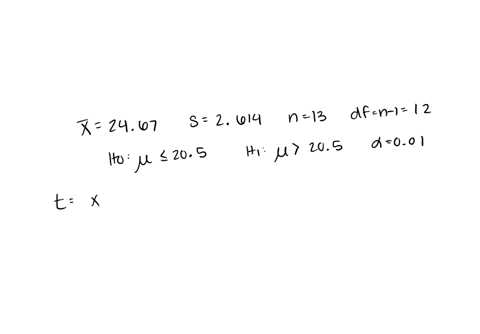 x̄ = 24.67 s = 2.614 n = 13 df = n-1 = 12
H0: μ ≤ 20.5 H1: μ > 20.5 α = 0.01
t = x